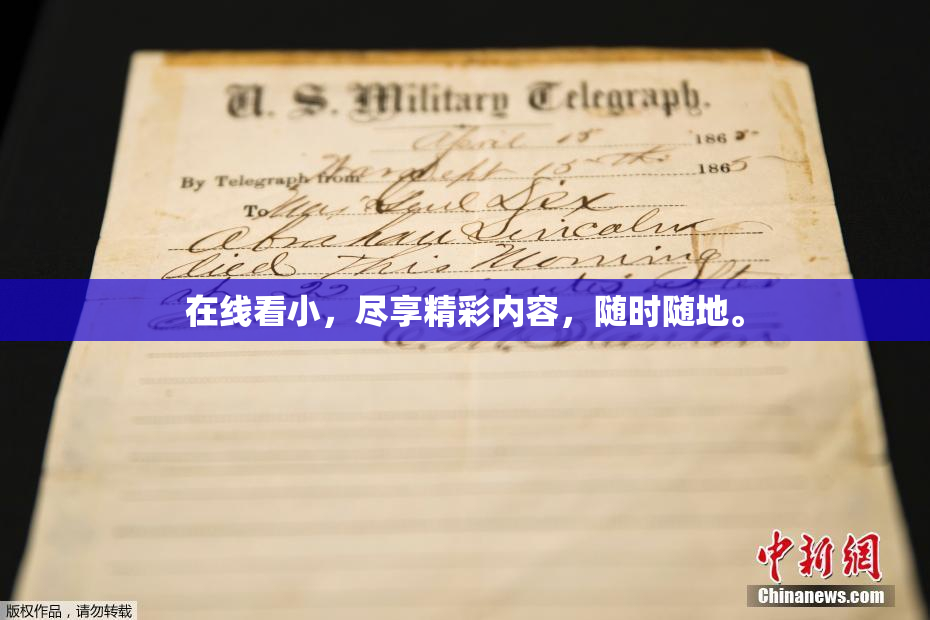 U. S. Military Telegraph.
April 15 1865
By Telegraph from War Dept 15th 1865
To Maj Genl Dix
Abraham Lincoln
died This Morning
at 22 minutes after
在线看小，尽享精彩内容，随时随地。
中新网
Chinanews.com
版权作品，请勿转载